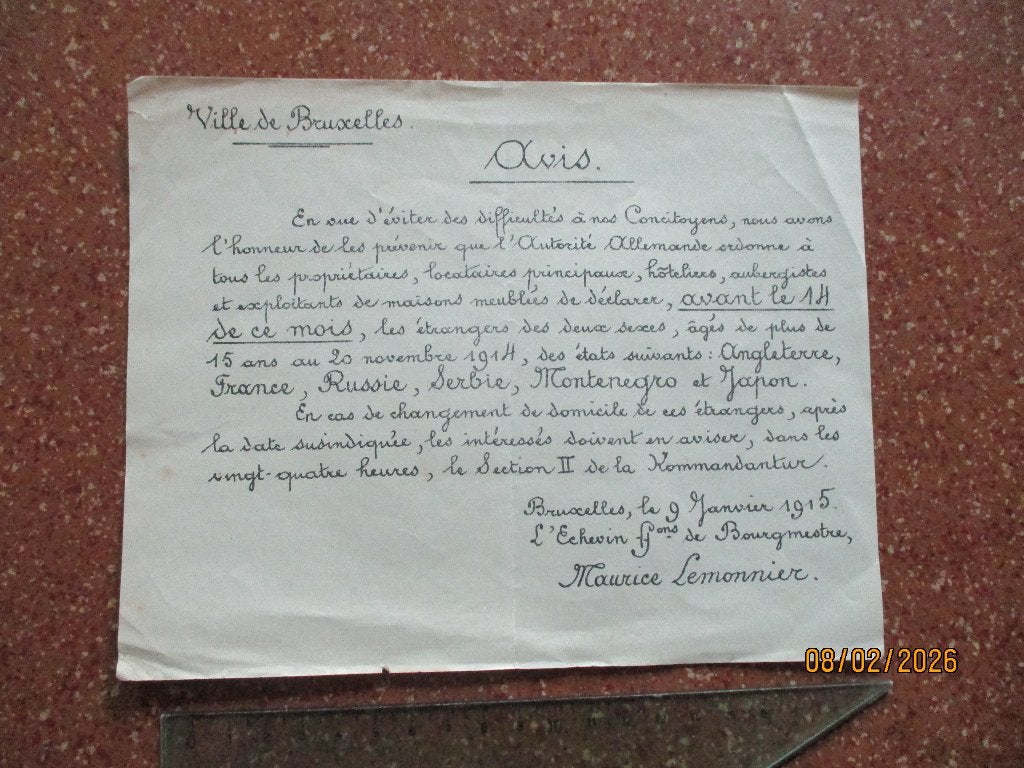 Ville de Bruxelles.
Avis.
En vue d'éviter des difficultés à nos Concitoyens, nous avons
l'honneur de les prévenir que l'Autorité Allemande ordonne à
tous les propriétaires, locataires principaux, hôteliers, aubergistes
et exploitants de maisons meublés de déclarer, avant le 14
de ce mois, les étrangers des deux sexes, âgés de plus de
15 ans au 20 novembre 1914, des états suivants: Angleterre,
France, Russie, Serbie, Montenegro et Japon.
En cas de changement de domicile de ces étrangers, après
la date susindiquée, les intéressés doivent en aviser, dans les
vingt-quatre heures, le Section II de la Kommandantur.
Bruxelles, le 9 Janvier 1915.
L'Echevin ff ons de Bourgmestre,
Maurice Lemonnier.
08/02/2026